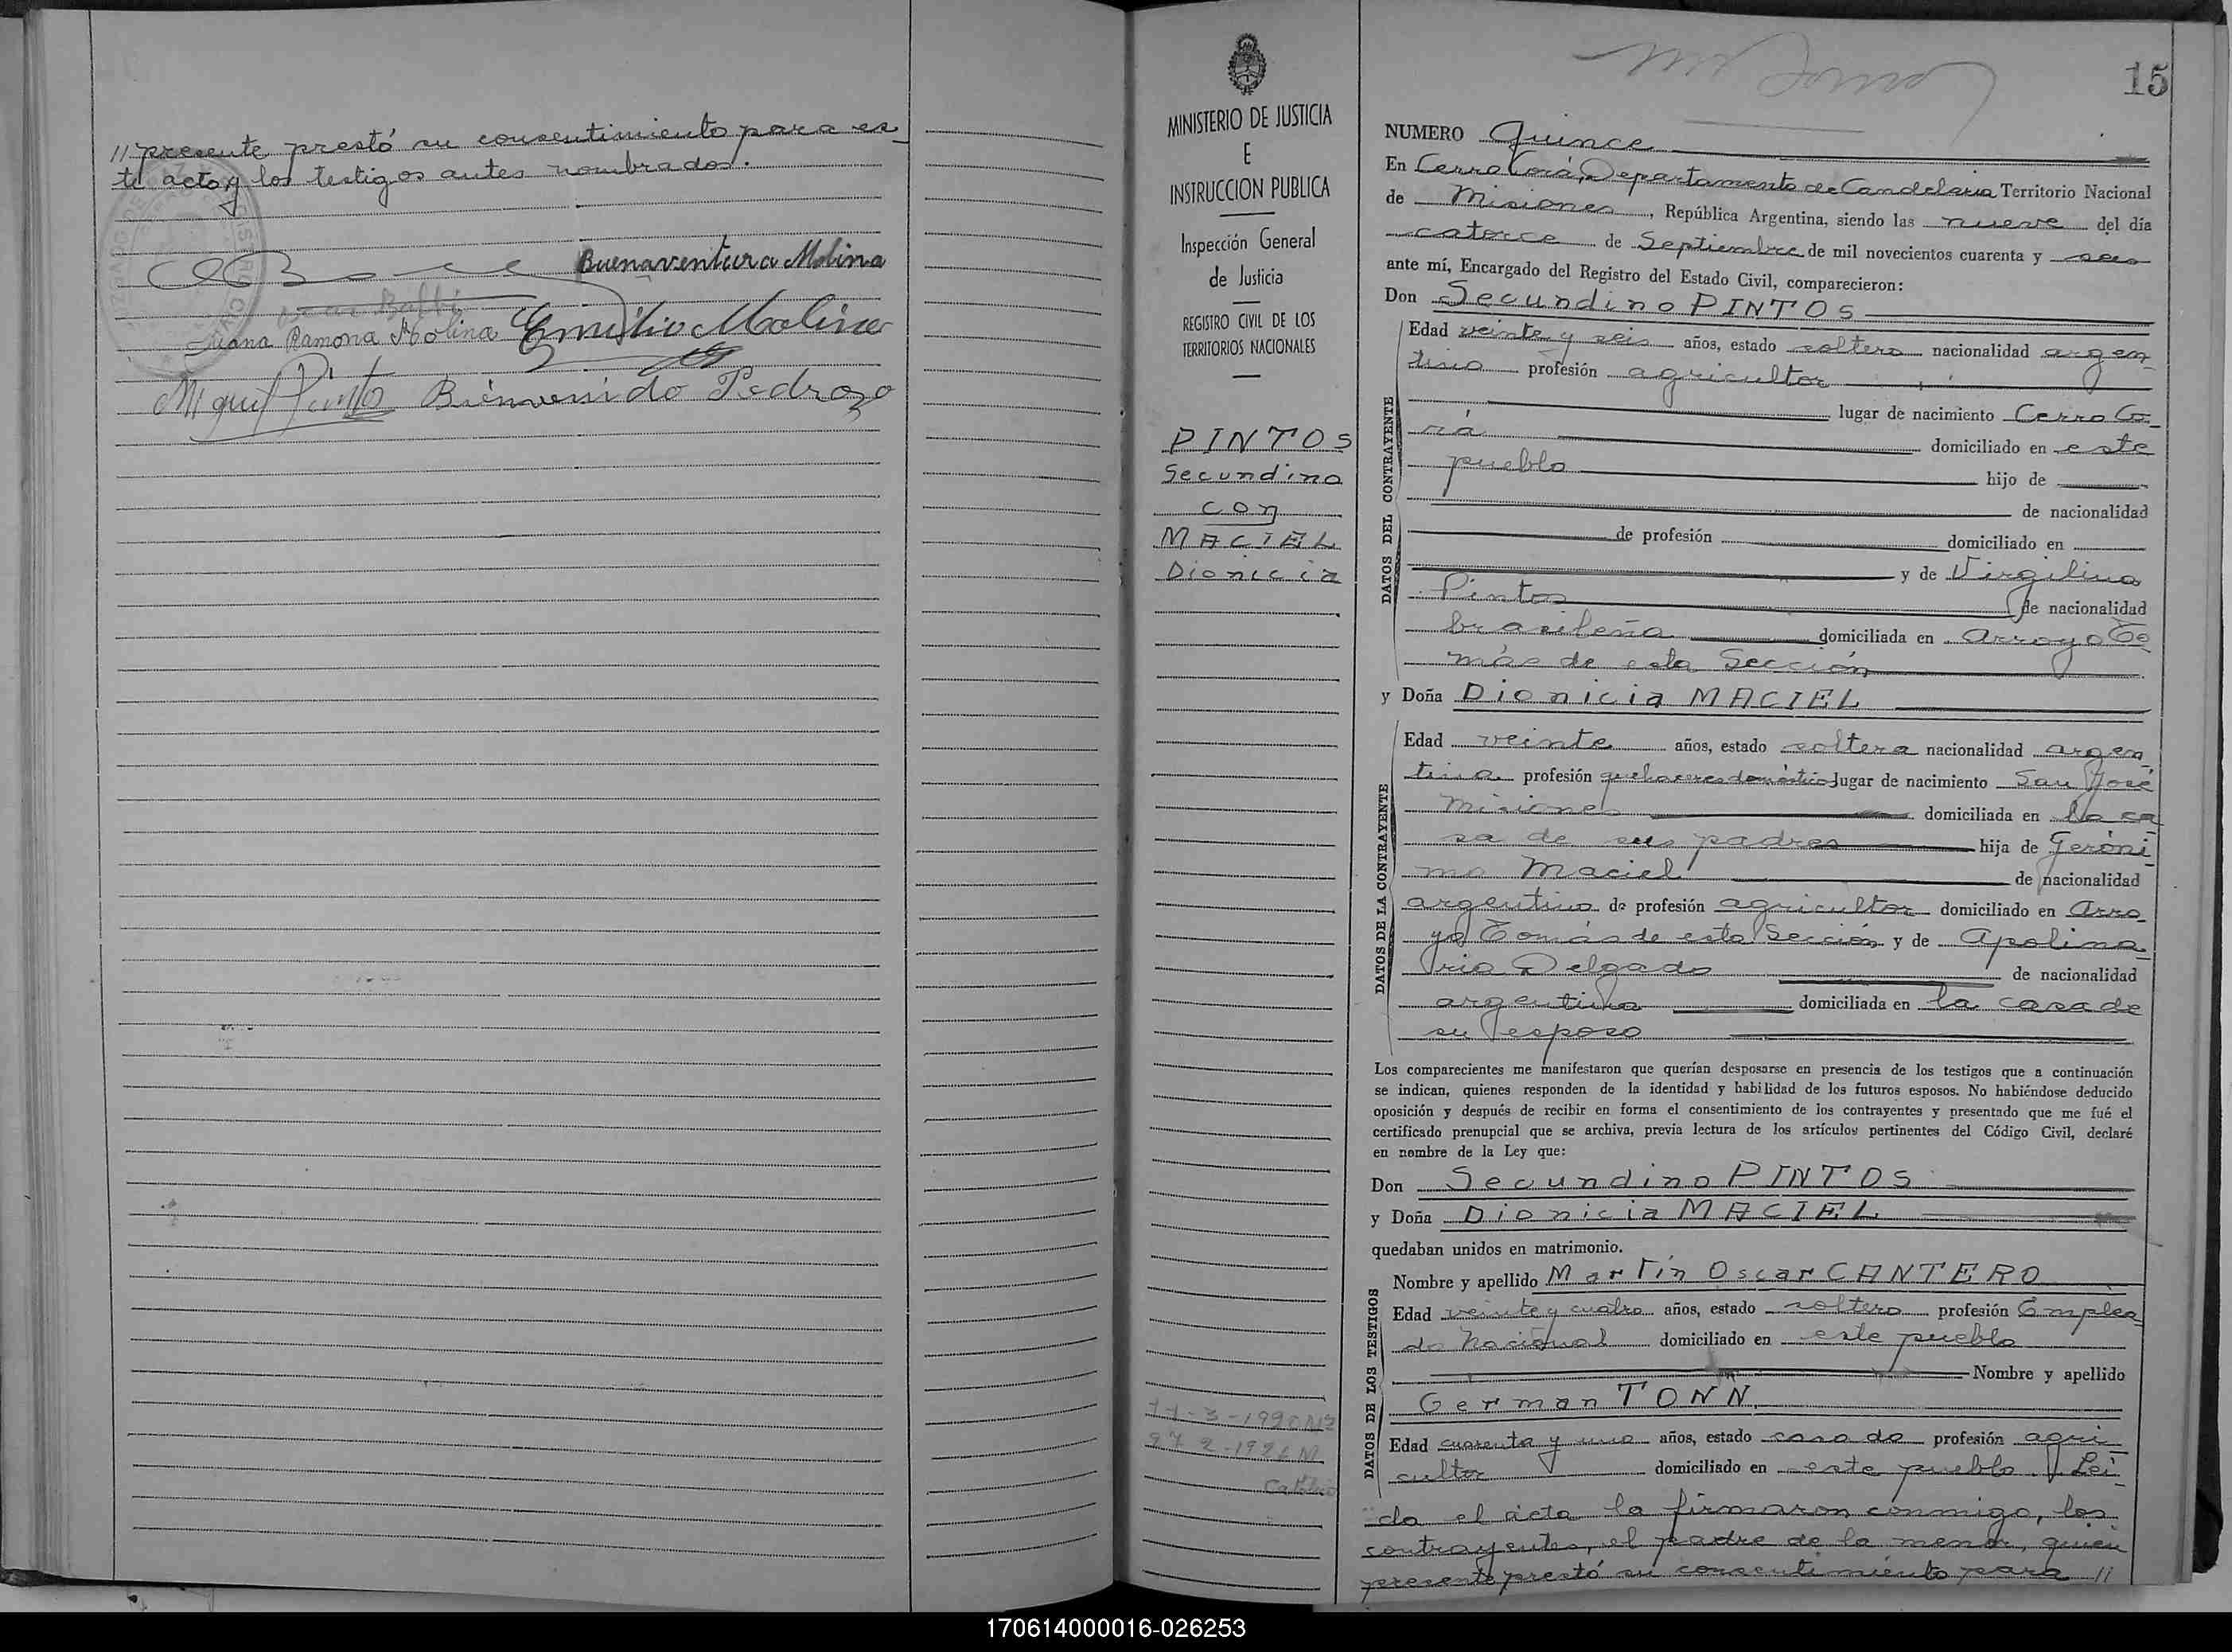 // presente prestó su consentimiento para es-
te acto, y los testigos antes nombrados.
Buenaventura Molina
Juana Ramona Molina Emilio Molina
Miguel Pinto Bienvenido Pedrozo
MINISTERIO DE JUSTICIA
E
INSTRUCCION PUBLICA
Inspección General
de Justicia
REGISTRO CIVIL DE LOS
TERRITORIOS NACIONALES
PINTOS
Secundino
con
MACIEL
Dionicia
15
NUMERO Quince
En Cerro Corá, Departamento de Candelaria Territorio Nacional
de Misiones, República Argentina, siendo las nueve del día
catorce de Septiembre de mil novecientos cuarenta y seis
ante mí, Encargado del Registro del Estado Civil, comparecieron:
Don Secundino PINTOS
DATOS DEL CONTRAYENTE
Edad veinte y seis años, estado soltero nacionalidad argen-
tino profesión agricultor
lugar de nacimiento Cerro Co-
rá domiciliado en este
pueblo hijo de
de nacionalidad
de profesión domiciliado en
y de Virgilina
Pintos de nacionalidad
brasileña domiciliada en Arroyo To-
más de esta Sección
y Doña Dionicia MACIEL
DATOS DE LA CONTRAYENTE
Edad veinte años, estado soltera nacionalidad argen-
tina profesión quehaceres domésticos lugar de nacimiento San José
Misiones domiciliada en la ca-
sa de sus padres hija de Geróni-
mo Maciel de nacionalidad
argentino de profesión agricultor domiciliado en Arro-
yo Tomás de esta Sección y de Apolina-
ria Delgado de nacionalidad
argentina domiciliada en la casa de
su esposo
Los comparecientes me manifestaron que querían desposarse en presencia de los testigos que a continuación
se indican, quienes responden de la identidad y habilidad de los futuros esposos. No habiéndose deducido
oposición y después de recibir en forma el consentimiento de los contrayentes y presentado que me fué el
certificado prenupcial que se archiva, previa lectura de los artículos pertinentes del Código Civil, declaré
en nombre de la Ley que:
Don Secundino PINTOS
y Doña Dionicia MACIEL
quedaban unidos en matrimonio.
DATOS DE LOS TESTIGOS
Nombre y apellido Martín Oscar CANTERO
Edad veinte y cuatro años, estado soltero profesión Emplea-
do Nacional domiciliado en este pueblo
Nombre y apellido
German TONN.
Edad cuarenta y uno años, estado casado profesión agri-
cultor domiciliado en este pueblo. Lei-
da el acta la firmaron conmigo, los
contrayentes, el padre de la menor, quien
presente prestó su consentimiento para //
170614000016-026253